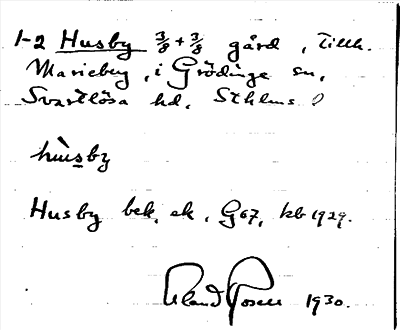 1-2 Husby 3/8 + 3/8 gård, Tillh.
Marieberg, i Grödinge sn,
Svartlösa hd, Sthlms
hùsby
Husby bek. ek. G67, kb 1929.
Roland Rosell 1930.